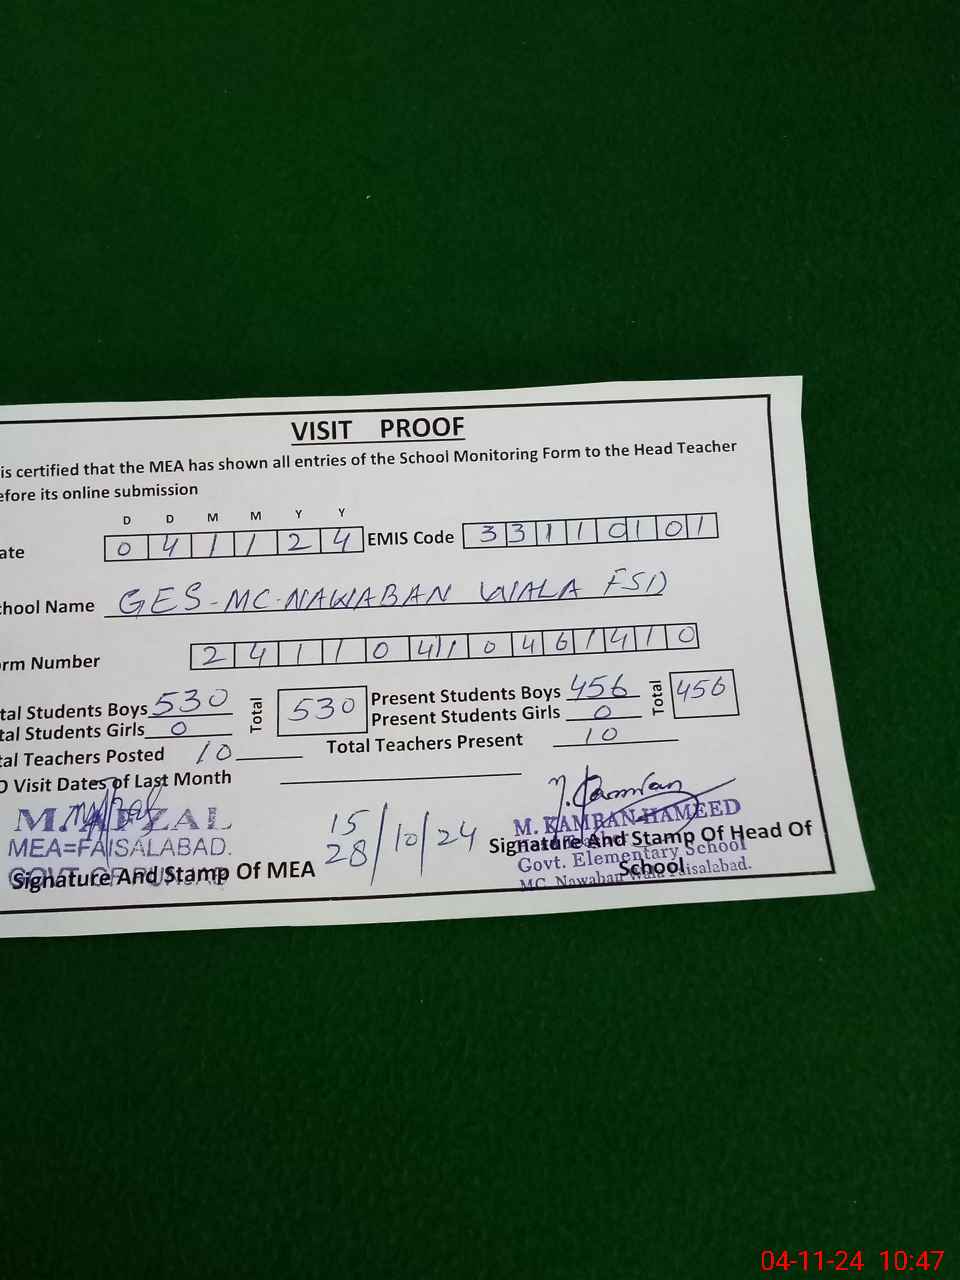 VISIT PROOF
is certified that the MEA has shown all entries of the School Monitoring Form to the Head Teacher
efore its online submission
D D M M Y Y
ate 0 4 1 1 2 4 EMIS Code 3 3 1 1 0 1 0 1
chool Name GES-MC-NAWABAN WALA FSD
rm Number 2 4 1 1 0 4 1 0 4 6 1 4 1 0
tal Students Boys 530 Total 530 Present Students Boys 456 Total 456
tal Students Girls 0 Present Students Girls 0
tal Teachers Posted 10 Total Teachers Present 10
O Visit Dates of Last Month
15
28/10/24
M. AFZAL
MEA=FAISALABAD.
Signature And Stamp Of MEA
M. Kamran
M. KAMRAN HAMEED
Signature And Stamp Of Head Of
School
Govt. Elementary School
MC Nawaban Wala Faisalabad.
04-11-24 10:47